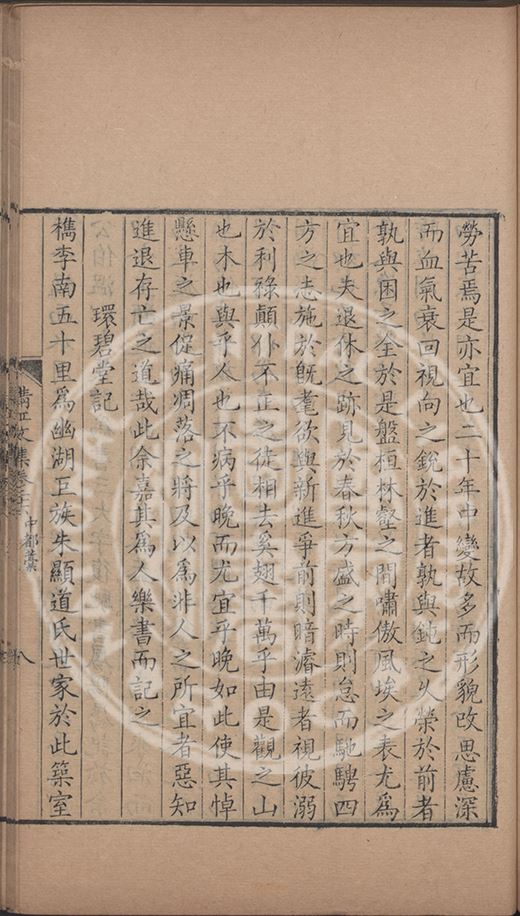 勞苦焉是亦宜也二十年中變故多而形貌改思慮深
而血氣衰回視向之銳於進者孰與鈍之久榮於前者
孰與困之全於是盤桓林壑之間嘯傲風埃之表尤爲
宜也夫退休之跡見於春秋方盛之時則怠而馳騁四
方之志施於旣耄欲與新進爭前則暗濬遠者視彼溺
於利祿顛仆不止之徒相去奚翅千萬乎由是觀之山
也木也與乎人也不病乎晚而尤宜乎晚如此使其悼
懸車之景促痛凋落之將及以爲非人之所宜者惡知
進退存亡之道哉此余嘉其爲人樂書而記之
環碧堂記
檇李南五十里爲幽湖巨族朱顯道氏世家於此築室
中都藁
八